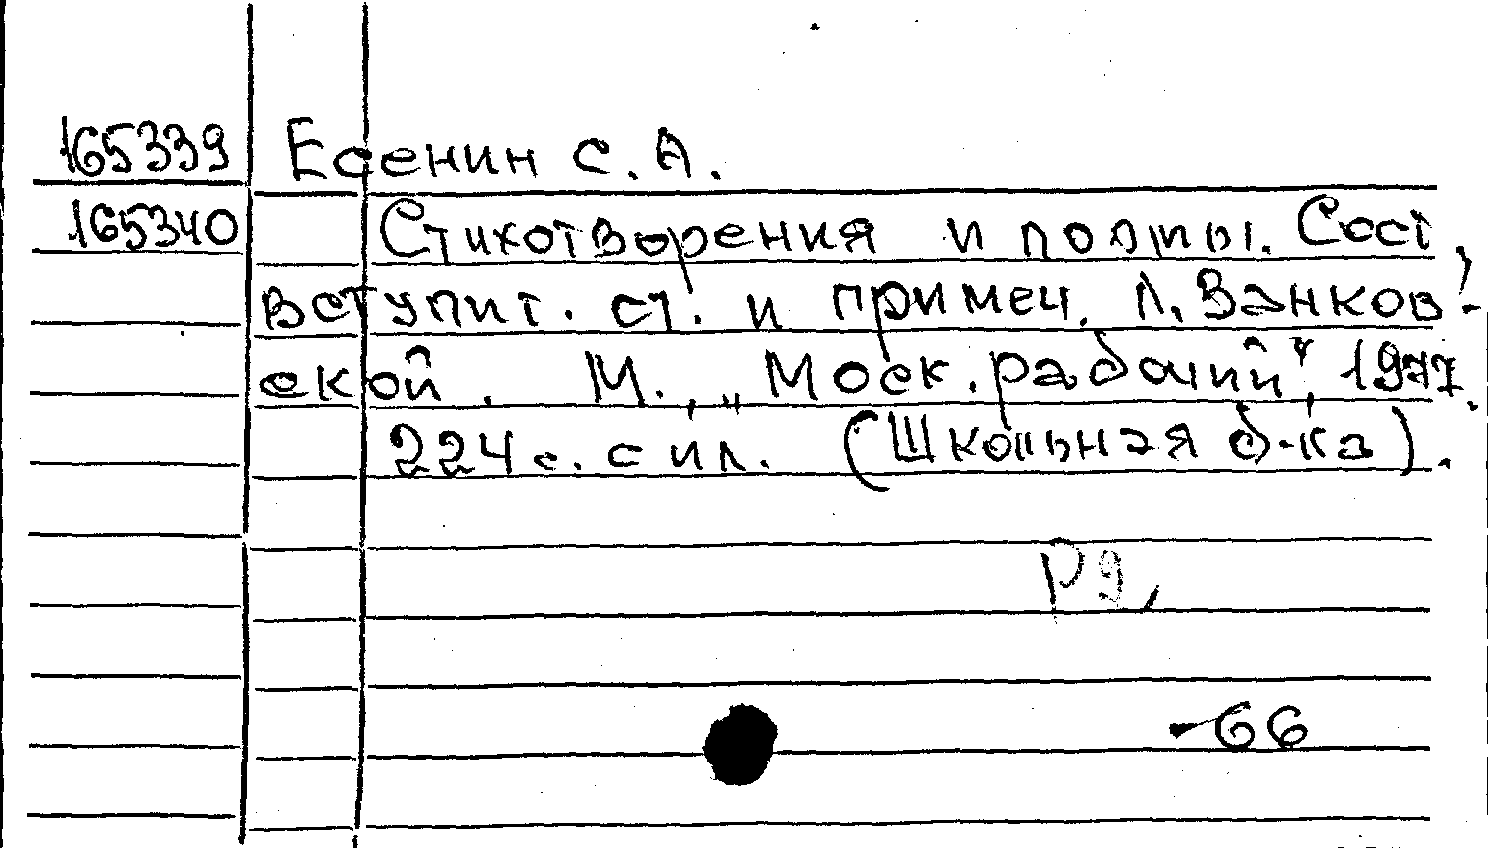 165339 Есенин С. А.
165340 Стихотворения и поэмы. Сост.,
вступит. ст. и примеч. Л. Занков-
ской. М., „Моск. рабочий“, 1977.
224 с. с ил. (Школьная б-ка).
Р2
-66